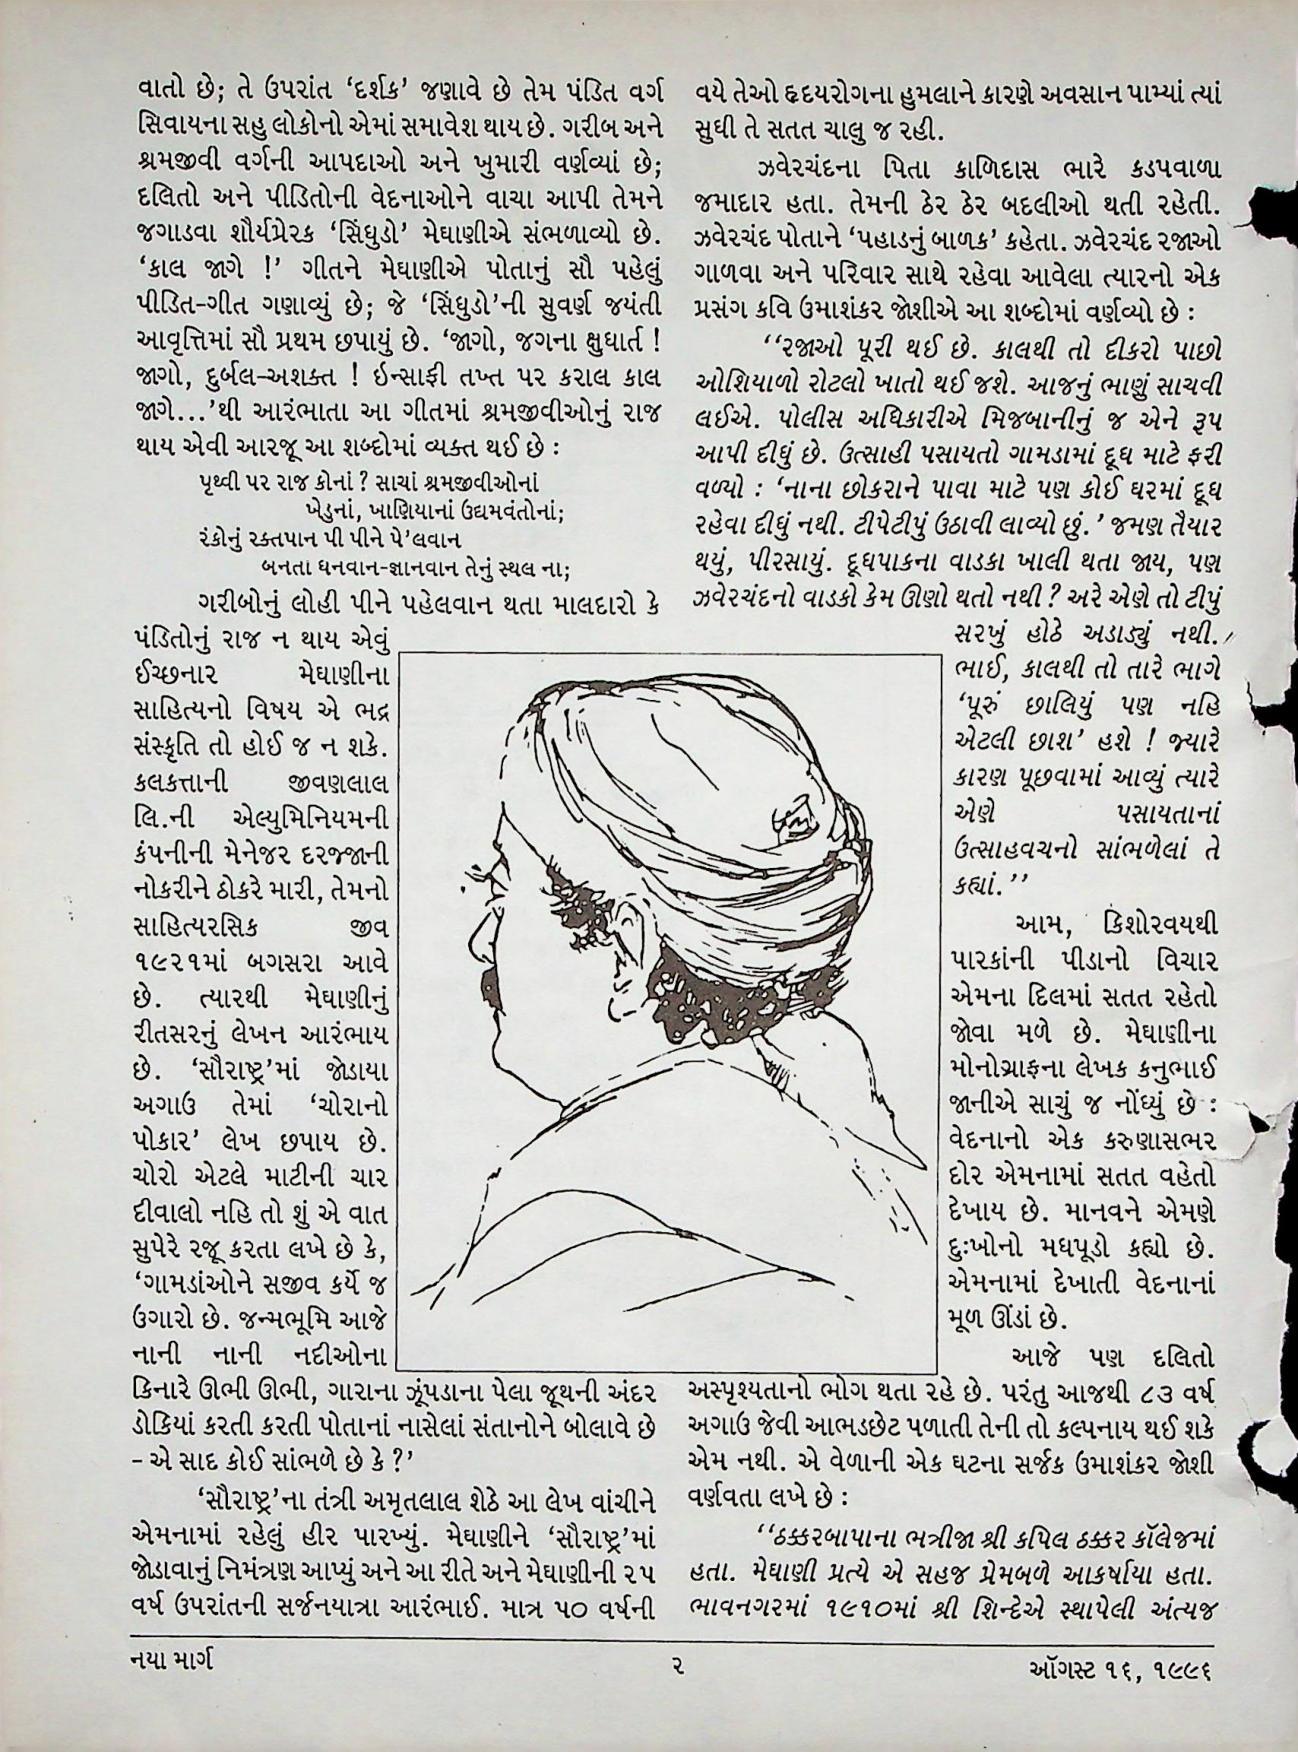 વાતો છે; તે ઉપરાંત ‘દર્શક’ જણાવે છે તેમ પંડિત વર્ગ
સિવાયના સહુ લોકોનો એમાં સમાવેશ થાય છે. ગરીબ અને
શ્રમજીવી વર્ગની આપદાઓ અને ખુમારી વર્ણવ્યાં છે;
દલિતો અને પીડિતોની વેદનાઓને વાચા આપી તેમને
જગાડવા શૌર્યપ્રેરક ‘સિંધુડો’ મેઘાણીએ સંભળાવ્યો છે.
‘કાલ જાગે !’ ગીતને મેઘાણીએ પોતાનું સૌ પહેલું
પીડિત-ગીત ગણાવ્યું છે; જે ‘સિંધુડો’ની સુવર્ણ જયંતી
આવૃત્તિમાં સૌ પ્રથમ છપાયું છે. ‘જાગો, જગના ક્ષુધાર્ત !
જાગો, દુર્બલ-અશક્ત ! ઇન્સાફી તખ્ત પર કરાલ કાલ
જાગે...’થી આરંભાતા આ ગીતમાં શ્રમજીવીઓનું રાજ
થાય એવી આરજૂ આ શબ્દોમાં વ્યક્ત થઈ છે :
પૃથ્વી પર રાજ કોનાં ? સાચાં શ્રમજીવીઓનાં
ખેડુનાં, ખાણિયાનાં ઉદ્યમવંતોનાં;
રંકોનું રક્તપાન પી પીને પે’લવાન
બનતા ધનવાન-જ્ઞાનવાન તેનું સ્થલ ના;
ગરીબોનું લોહી પીને પહેલવાન થતા માલદારો કે
પંડિતોનું રાજ ન થાય એવું
ઈચ્છનાર મેઘાણીના
સાહિત્યનો વિષય એ ભદ્ર
સંસ્કૃતિ તો હોઈ જ ન શકે.
કલકત્તાની જીવણલાલ
લિ.ની એલ્યુમિનિયમની
કંપનીની મેનેજર દરજ્જાની
નોકરીને ઠોકરે મારી, તેમનો
સાહિત્યરસિક જીવ
૧૯૨૧માં બગસરા આવે
છે. ત્યારથી મેઘાણીનું
રીતસરનું લેખન આરંભાય
છે. ‘સૌરાષ્ટ્ર’માં જોડાયા
અગાઉ તેમાં ‘ચોરાનો
પોકાર’ લેખ છપાય છે.
ચોરો એટલે માટીની ચાર
દીવાલો નહિ તો શું એ વાત
સુપેરે રજૂ કરતા લખે છે કે,
‘ગામડાંઓને સજીવ કર્યે જ
ઉગારો છે. જન્મભૂમિ આજે
નાની નાની નદીઓના
કિનારે ઊભી ઊભી, ગારાના ઝૂંપડાના પેલા જૂથની અંદર
ડોકિયાં કરતી કરતી પોતાનાં નાસેલાં સંતાનોને બોલાવે છે
- એ સાદ કોઈ સાંભળે છે કે ?’
‘સૌરાષ્ટ્ર’ના તંત્રી અમૃતલાલ શેઠે આ લેખ વાંચીને
એમનામાં રહેલું હીર પારખ્યું. મેઘાણીને ‘સૌરાષ્ટ્ર’માં
જોડાવાનું નિમંત્રણ આપ્યું અને આ રીતે અને મેઘાણીની ૨૫
વર્ષ ઉપરાંતની સર્જનયાત્રા આરંભાઈ. માત્ર ૫૦ વર્ષની
વયે તેઓ હૃદયરોગના હુમલાને કારણે અવસાન પામ્યાં ત્યાં
સુધી તે સતત ચાલુ જ રહી.
ઝવેરચંદના પિતા કાળિદાસ ભારે કડપવાળા
જમાદાર હતા. તેમની ઠેર ઠેર બદલીઓ થતી રહેતી.
ઝવેરચંદ પોતાને ‘પહાડનું બાળક’ કહેતા. ઝવેરચંદ રજાઓ
ગાળવા અને પરિવાર સાથે રહેવા આવેલા ત્યારનો એક
પ્રસંગ કવિ ઉમાશંકર જોશીએ આ શબ્દોમાં વર્ણવ્યો છે :
‘‘રજાઓ પૂરી થઈ છે. કાલથી તો દીકરો પાછો
ઓશિયાળો રોટલો ખાતો થઈ જશે. આજનું ભાણું સાચવી
લઈએ. પોલીસ અધિકારીએ મિજબાનીનું જ એને રૂપ
આપી દીધું છે. ઉત્સાહી પસાયતો ગામડામાં દૂધ માટે ફરી
વળ્યો : ‘નાના છોકરાને પાવા માટે પણ કોઈ ઘરમાં દૂધ
રહેવા દીધું નથી. ટીપેટીપું ઉઠાવી લાવ્યો છું.’ જમણ તૈયાર
થયું, પીરસાયું. દૂધપાકના વાડકા ખાલી થતા જાય, પણ
ઝવેરચંદનો વાડકો કેમ ઊણો થતો નથી ? અરે એણે તો ટીપું
સરખું હોઠે અડાડ્યું નથી.
ભાઈ, કાલથી તો તારે ભાગે
‘પૂરું છાલિયું પણ નહિ
એટલી છાશ’ હશે ! જ્યારે
કારણ પૂછવામાં આવ્યું ત્યારે
એણે પસાયતાનાં
ઉત્સાહવચનો સાંભળેલાં તે
કહ્યાં.’’
આમ, કિશોરવયથી
પારકાંની પીડાનો વિચાર
એમના દિલમાં સતત રહેતો
જોવા મળે છે. મેઘાણીના
મોનોગ્રાફના લેખક કનુભાઈ
જાનીએ સાચું જ નોંધ્યું છે :
વેદનાનો એક કરુણાસભર
દોર એમનામાં સતત વહેતો
દેખાય છે. માનવને એમણે
દુઃખોનો મધપૂડો કહ્યો છે.
એમનામાં દેખાતી વેદનાનાં
મૂળ ઊંડાં છે.
આજે પણ દલિતો
અસ્પૃશ્યતાનો ભોગ થતા રહે છે. પરંતુ આજથી ૮૩ વર્ષ
અગાઉ જેવી આભડછેટ પળાતી તેની તો કલ્પનાય થઈ શકે
એમ નથી. એ વેળાની એક ઘટના સર્જક ઉમાશંકર જોશી
વર્ણવતા લખે છે :
‘‘ઠક્કરબાપાના ભત્રીજા શ્રી કપિલ ઠક્કર કૉલેજમાં
હતા. મેઘાણી પ્રત્યે એ સહજ પ્રેમબળે આકર્ષાયા હતા.
ભાવનગરમાં ૧૯૧૦માં શ્રી શિન્દેએ સ્થાપેલી અંત્યજ
નયા માર્ગ
૨
ઑગસ્ટ ૧૬, ૧૯૯૬